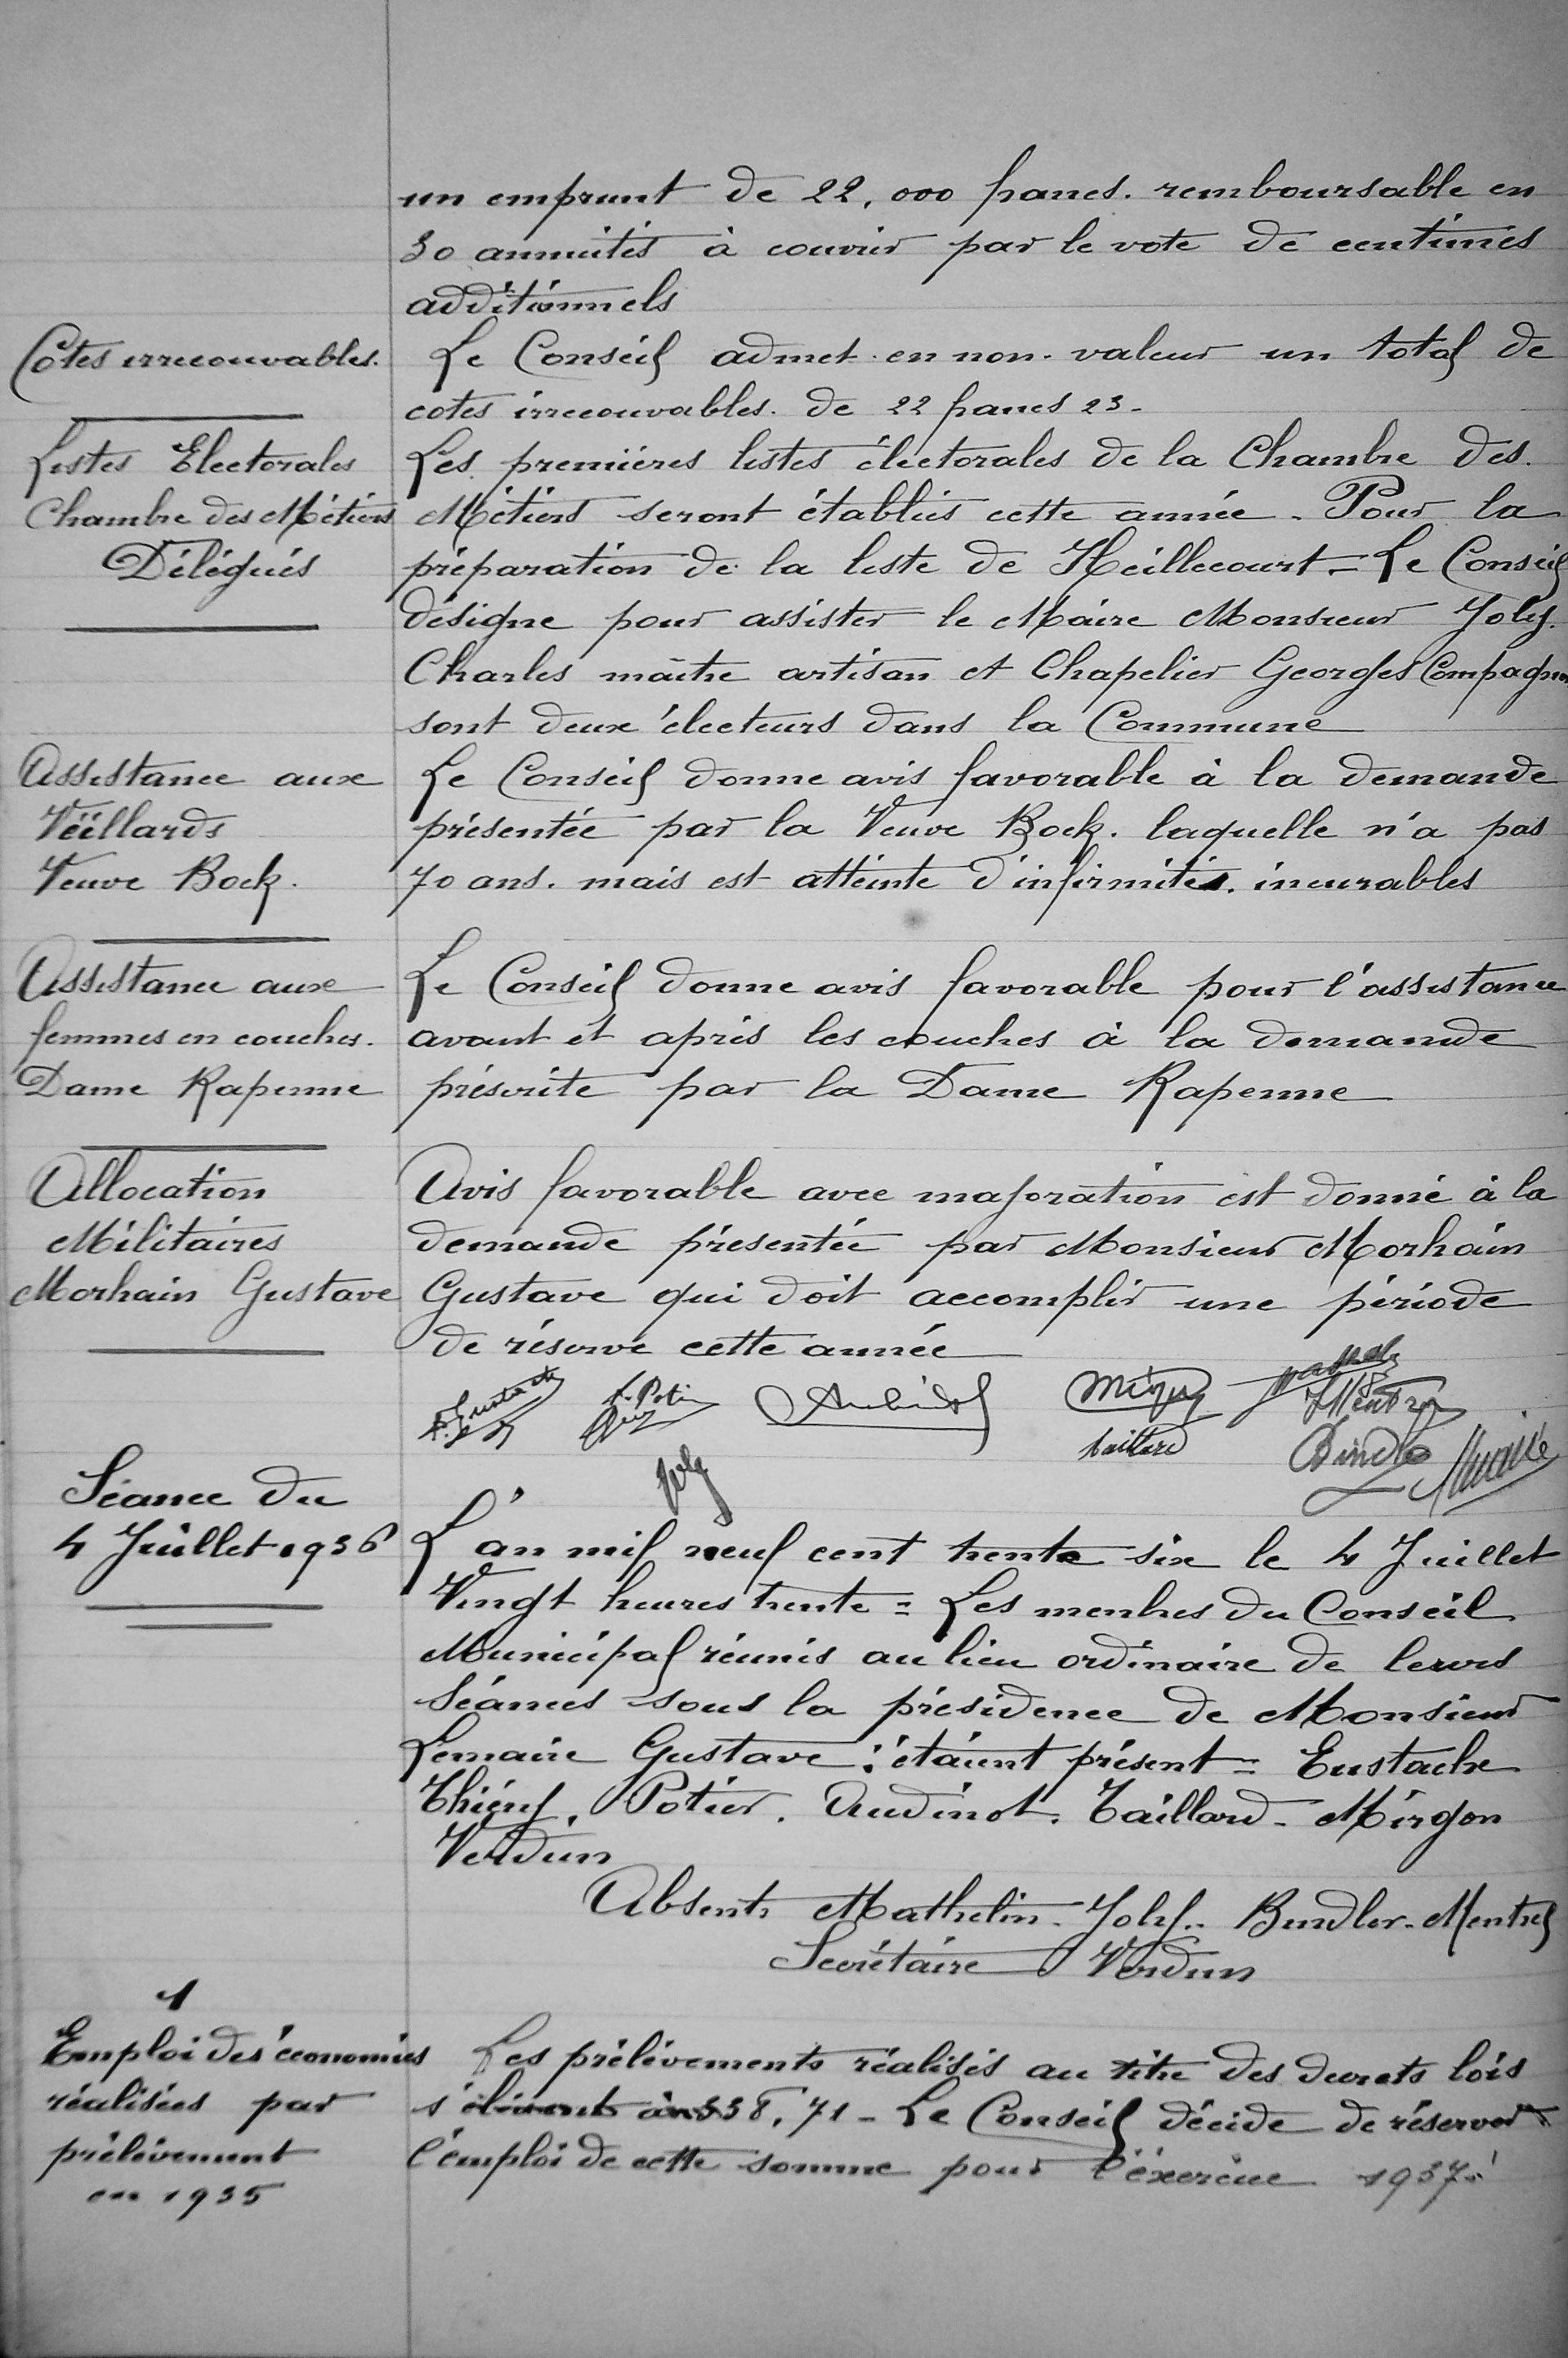 un emprunt de 22.000 francs. remboursable en
30 annuités à couvrir par le vote de centimes
additionnels
Côtes irrecouvables.
Le Conseil admet en non-valeur un total de
cotes irrecouvables. de 22 francs 23-
Listes Electorales
Chambre des Métiers
Délégués
Les premières listes électorales de la Chambre des
Métiers seront établies cette année. Pour la
préparation de la liste de Heillecourt = Le Conseil
désigne pour assister le Maire Monsieur Joly.
Charles maître artisan et Chapelier Georges Compagnon
sont deux électeurs dans la Commune
Assistance aux
Vieillards
Veuve Bock.
Le Conseil donne avis favorable à la demande
présentée par la Veuve Bock. laquelle n'a pas
70 ans. mais est atteinte d'infirmités. incurables
Assistance aux
femmes en couches.
Dame Rapenne
Le Conseil donne avis favorable pour l'assistance
avant et après les couches à la demande
présentée par la Dame Rapenne
Allocation
Militaires
Morhain Gustave
Avis favorable avec majoration est donné à la
demande présentée par Monsieur Morhain
Gustave qui doit accomplir une période
de réserve cette année
Taillard
Joly
Séance du
4 Juillet 1936
L'an mil neuf cent trente six le 4 Juillet
Vingt heures trente = Les menbres du Conseil
Municipal réunis au lieu ordinaire de leurs
Séances sous la présidence de Monsieur
Lemaire Gustave : étaient présent = Eustache
Thiéry. Potier. Audinot. Taillard - Mirgon
Verdun
Absents Mathelin - Joly - Bindler - Mentrel
Secrétaire Verdun
1
Emploi des économies
réalisées par
prélèvement
en 1935
Les prélèvements réalisés au titre des decrets lois
s'élèvent à 338,71 - Le Conseil décide de réserver
l'emploi de cette somme pour l'éxercice 1937.